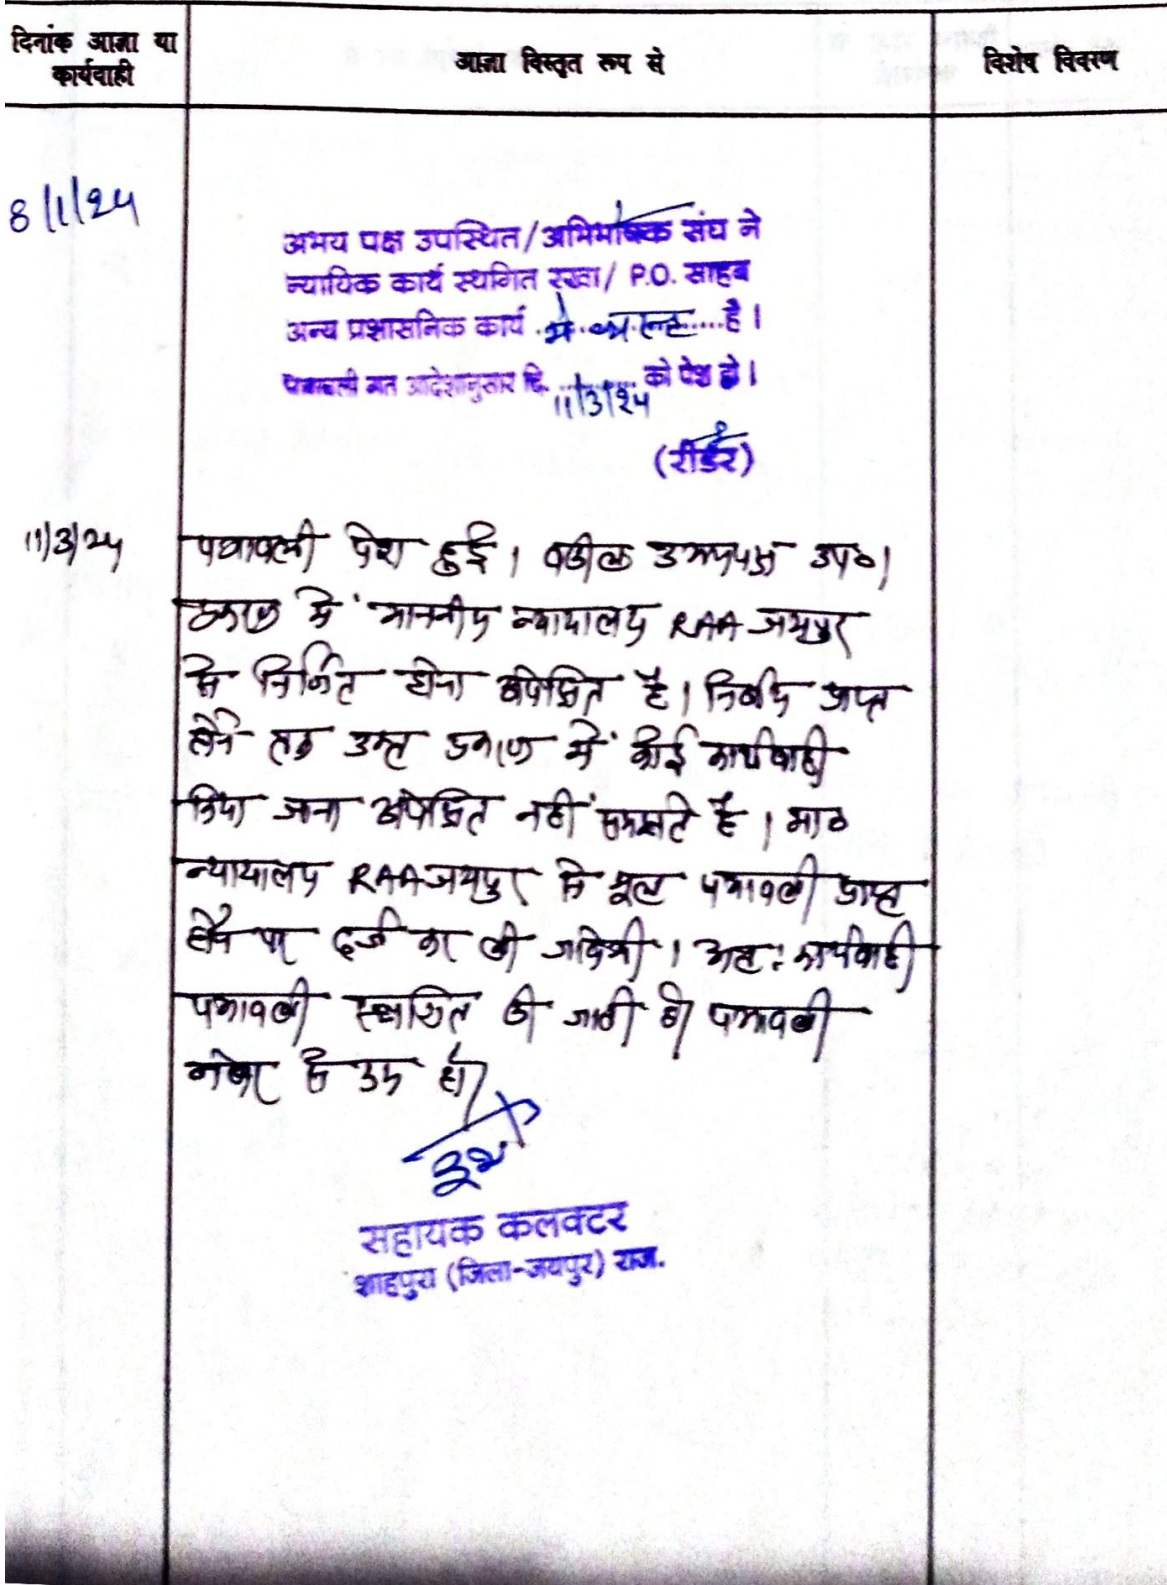 दिनांक आज्ञा या
कार्यवाही
आज्ञा विस्तृत रूप से
विशेष विवरण
8/1/24
अभय पक्ष उपस्थित/अभिभाषक संघ ने
न्यायिक कार्य स्थगित रखा/ P.O. साहब
अन्य प्रशासनिक कार्य में व्यस्त है।
पत्रावली गत आदेशानुसार दि. 11/3/24 को पेश हो।
(रीडर)
11/3/24
पत्रावली पेश हुई। वकील उभयपक्ष उप०।
में माननीय न्यायालय RAA जयपुर
से निर्णित होना अपेक्षित है। निर्णय प्राप्त
होने तक उक्त प्रकरण में कोई कार्यवाही
किया जाना अपेक्षित नहीं समझते है। मा०
न्यायालय RAA जयपुर से मूल पत्रावली प्राप्त
होने पर दर्ज कर ली जावेगी। अतः कार्यवाही
पत्रावली स्थगित की जाती है पत्रावली
नम्बर से कम हो।
सहायक कलक्टर
शाहपुरा (जिला-जयपुर) राज.